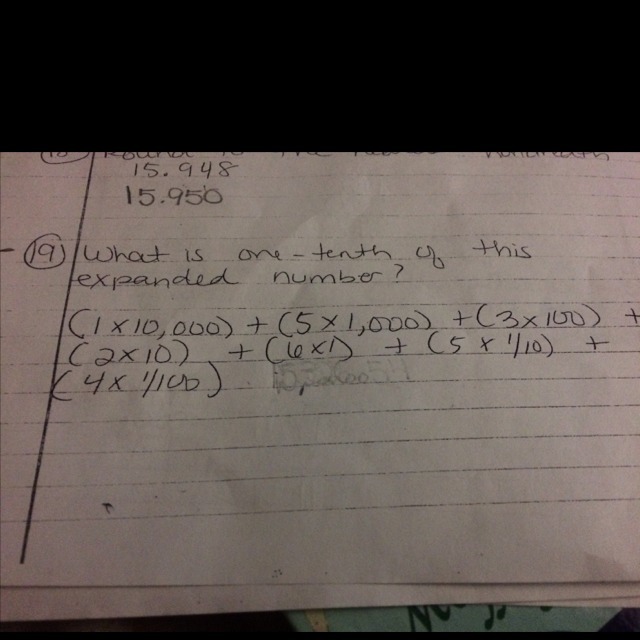 15.948
15.950
19 What is one-tenth of this
expanded number?
(1 x 10,000) + (5 x 1,000) + (3 x 100) +
(2 x 10) + (6 x 1) + (5 x 1/10) +
(4 x 1/100)